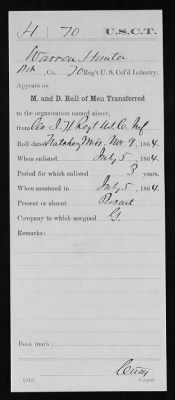 H 70 U.S.C.T.
Warren Hunter
Pvt., Co. , 70 Reg't U. S. Col'd Infantry.
Appears on
M. and D. Roll of Men Transferred
to the organization named above,
from Co. I. 71 Regt U.S.C. Inf
Roll dated Natchez Miss. Nov 9, 1864.
When enlisted July 5, 1864.
Period for which enlisted 3 years.
When mustered in July 5, 1864
Present or absent Present
Company to which assigned G.
Remarks:
Book mark: